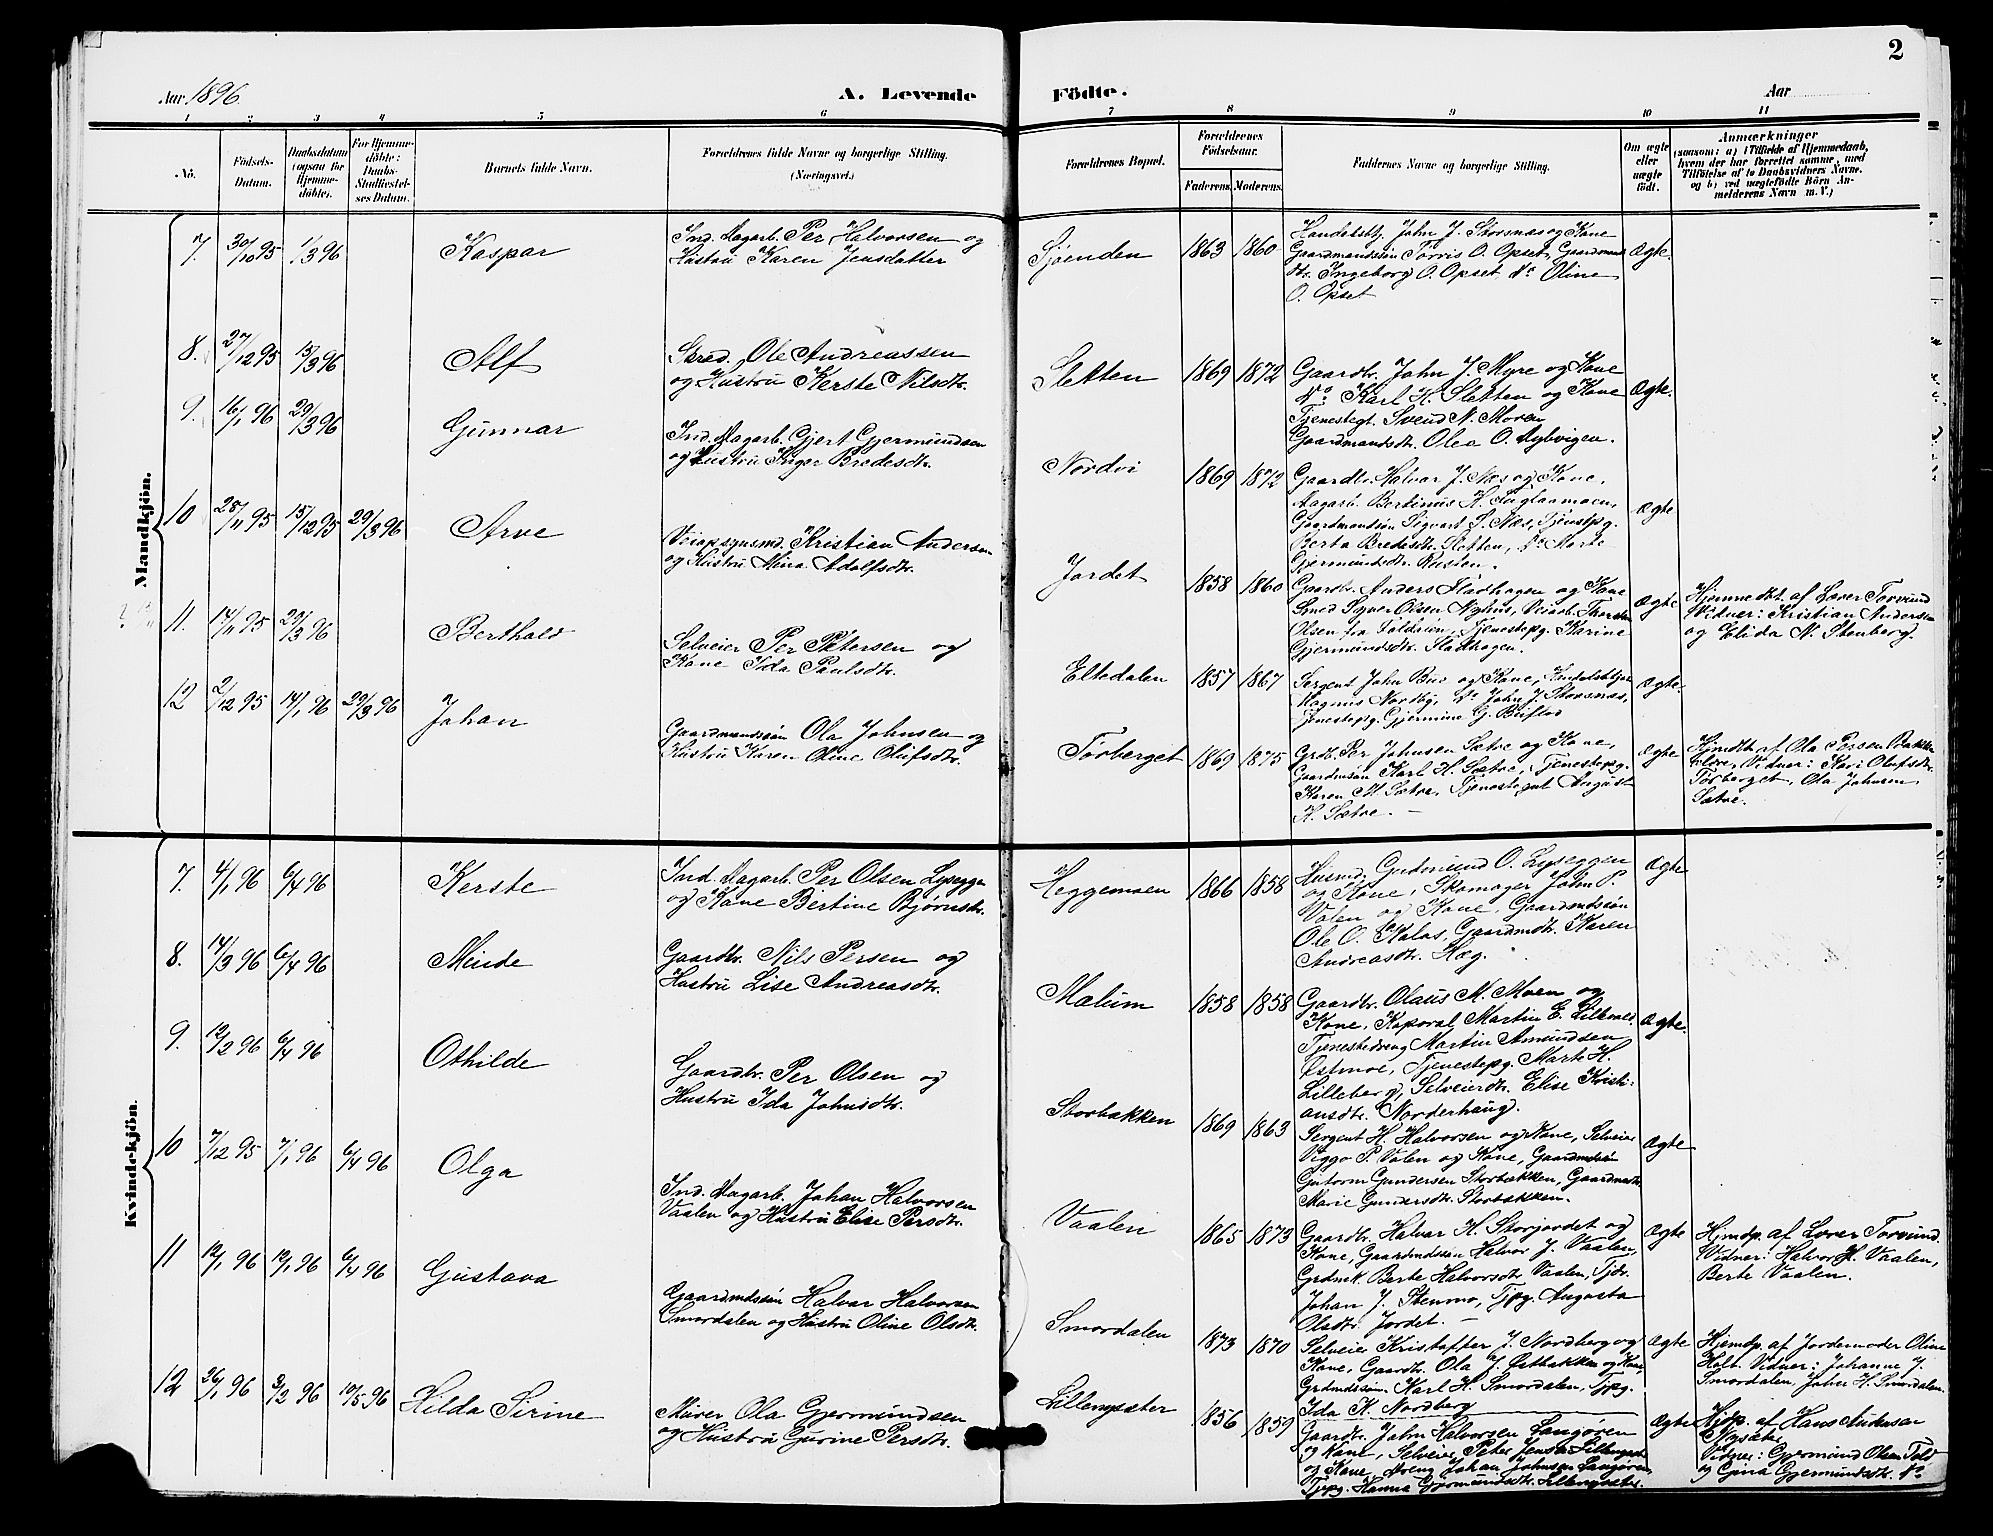 Aar 1896.
A. Levende
Födte.
Aar
2
1 2 3 4 5 6 7 8 9 10 11
No.
Födsels-
Datum.
Daabsdatum
(ogsaa for
Hjemme-
döbte).
For Hjemme-
döbte:
Daabs-
Stadfæstel-
ses Datum.
Barnets fulde Navn.
Forældrenes fulde Navne og borgerlige Stilling.
(Næringsvei.)
Forældrenes Bopæl.
Forældrenes
Födselsaar.
Faderens. Moderens.
Faddernes Navne og borgerlige Stilling.
Om ægte
eller
uægte
födt.
Anmærkninger
(saasom: a) i Tilfælde af Hjemmedaab,
hvem der har forrettet samme, med
Tilföielse af to Daabsvidners Navne.
og b) ved uægtefödte Börn An-
melderens Navn m. V.)
Mandkjön.
7. 30/10 95 1/3 96 Kaspar
Ind. Dagarb. Per Halvorsen og
Hustru Karen Jensdatter
Sjøenden 1863 1860
Handelsbtj. John J. Storsnæs og Kone
Gaardmandssøn Torris O. Opset, Gaardmands
dtr. Ingeborg O. Opset Do Oline
O. Opset
Ægte.
8. 27/12 95 15/3 96 Alf
Skred. Ole Andreassen
og Hustru Kerste Nilsdtr.
Sletten 1869 1872
Gaardbr. John J. Myre og Kone
Do Karl H. Sletten og Kone
Tjenestegt. Svend N. Moren
Gaardmandsdtr. Olea O. Nybvigen.
Ægte.
9. 16/1 96 29/3 96 Gunnar
Ind. Dagarb. Gjert Gjermundsen
og Hustru Inger Bredesdtr.
Nordvi 1869 1872
Gaardbr. Halvar J. Næs og Kone,
Dagarb. Bertinus H.
Gaardmandssøn Sigvart S. Næs, Tjenstpg.
Berta Bredesdtr. Sletten, Do Marte
Gjermundsdtr.
Ægte
10 28/11 95 15/12 95 29/3 96 Arve
Veiopsynsmd. Kristian Andersen
og Hustru Mina Adolfsdtr.
Jordet 1858 1860
Gaardbr. Anders Fladhagen og Kone
Smed Syver Olsen Nyhus, Veiarb. Thorsten
Olsen fra Foldalen, Tjenestepg. Karine
Gjermundsdtr. Fladhagen.
Ægte
Hjemmedbt. af Lærer Torvund
Vidner: Kristian Andersen
og Elida N. Stenberg.
11. 14/11 95 29/3 96 Berthold
Selveier Per Petersen og
Kone Ida Paulsdtr.
Eltedalen 1857 1867
Sergent John Bus og Kone, Handelsbtjen
Magnus Nordby, Do John J. Storsnæs,
Tjenestepg. Gjermine G.
Ægte.
12 2/12 95 14/1 96 29/3 96 Johan
Gaardmandssøn Ola Johnsen og
Hustru Karen Oline Olufsdtr.
Tørberget 1869 1875
Grdb. Per Johnsen Sætre og Kone,
Gaardmsøn Karl H. Sætre, Tjenestepg.
Karen M. Sætre, Tjenestegut August
H. Sætre. —
Ægte
Hjmdbt. af Ola Persen Bakken
Vidner: Kari Olufsdtr.
Tørberget, Ola Johnsen
Sætre.
Kvindekjön.
7. 4/1 96 6/4 96 Kerste
Ind. Dagarb. Per Olsen Lyseggen
og Kone Bertine Bjørnsdtr.
Heggemoen 1866 1858
Husmd. Gudmund O. Lyseggen
og Kone, Skomager John P.
Volen og Kone, Gaardmdssøn
Ole O. Kolos, Gaardmdtr. Karen
Andreasdtr. Hæg.
Ægte
8. 14/3 96 6/4 96 Minde
Gaardbr. Nils Persen og
Hustru Lise Andreasdtr.
Mælum 1858 1858
Gaardbr. Olaus M. Moen og
Kone, Kaporal Martin E. Lillevold.
Tjenestedreng Martin Amundsen
Østmoe, Tjenestepg. Marte H.
Lilleberg, Selveierdtr. Elise Kristi-
ansdtr. Norderhaug.
Ægte.
9. 12/2 96 6/4 96 Othilde
Gaardbr. Per Olsen og
Hustru Ida Johnsdtr.
Storbækken 1869 1863
Sergent H. Halvorsen og Kone, Selveier
Viggo P. Volen og Kone, Gaardmdssøn
Gutorm Gundersen Storbækken, Gaardmdtr.
Marie Gundersdtr. Storbækken.
Ægte
10 7/12 95 7/1 96 6/4 96 Olga
Ind. Dagarb. Johan Halvorsen
Vaalen og Hustru Elise Persdtr.
Vaalen 1865 1873
Gaardbr. Halvar H. Storjordet og
Kone, Gaardmdssøn Halvor J. Vaalen,
Berte Halvorsdtr. Vaalen, Tjdr.
Johan J. Stenmo, Tjpg. Augusta
Olsdtr. Jordet. —
Ægte
Hjmdp. af Lærer Torvund.
Vidner: Halvor H. Vaalen,
Berte Vaalen.
11 12/1 96 12/1 96 6/4 96 Gustava
Gaardmdssøn Halvar Halvorsen
Smordalen og Hustru Oline Olsdtr.
Smordalen 1873 1870
Selveier Kristoffer J. Nordberg og
Kone, Gaardbr. Ola J. Østbækken og Kone,
Grdmdssøn Karl H. Smordalen, Tjpg.
Ida K. Nordberg
Ægte
Hjemdp. af Jordemoder Oline
Holt. Vidner: Johanne J.
Smordalen, John H. Smordalen.
12 26/1 96 3/2 96 10/5 96 Hilda Sirine
Murer Ola Gjermundsen
og Hustru Gurine Persdtr.
Lillengsæter 1856 1859
Gaardbr. John Halvorsen Langøren
og Kone, Selveier Peter Jensen Lillengset
og Kone, Dreng Johan Johnsen Langøren,
Tjpg. Hanna Gjermundsdtr. Lillengsæter.
Ægte
Hjdp. af Hans Andersen
Nysæter
Vidner: Gjermund Olsen
og Gina Gjermundsdtr. Do